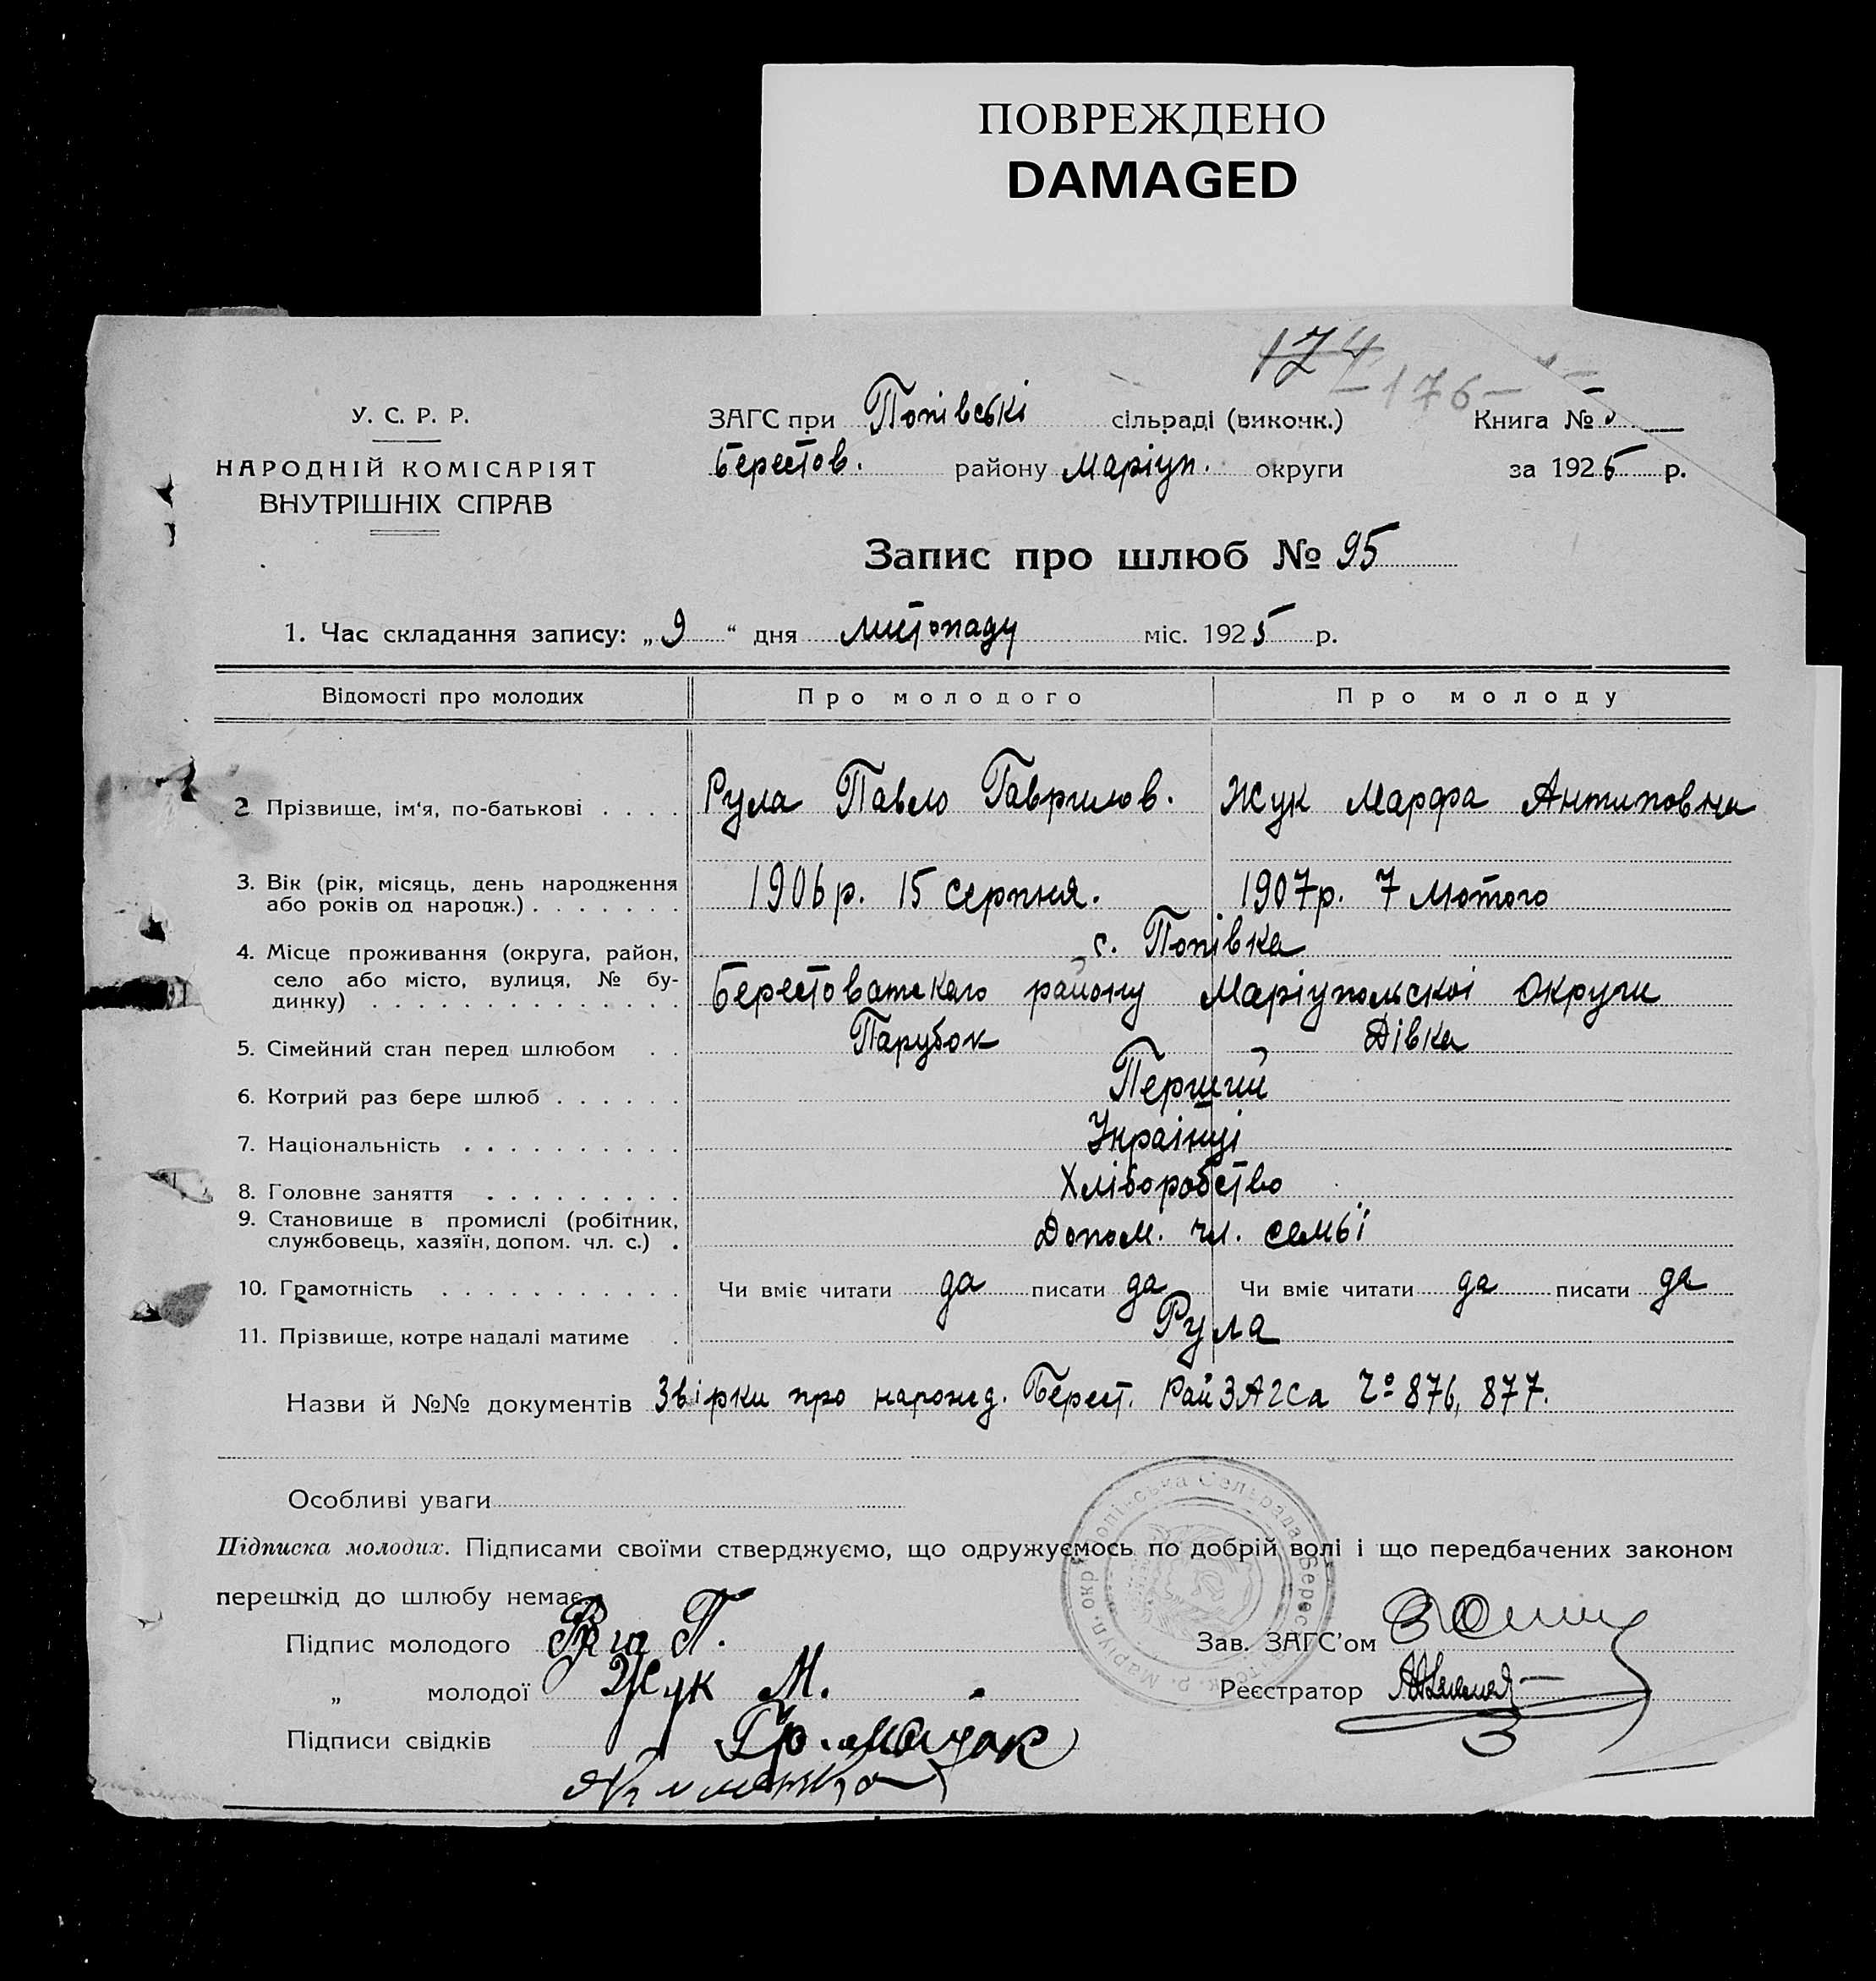 ПОВРЕЖДЕНО
DAMAGED
174
176
У. С. Р. Р.
НАРОДНІЙ КОМІСАРІЯТ
ВНУТРІШНІХ СПРАВ
ЗАГС при Попівські сільраді (виконк.) Книга №
Берестов. району Маріуп. округи за 1925 р.
Запис про шлюб № 95
1. Час складання запису: „ 9 “ дня листопаду міс. 1925 р.
Відомості про молодих Про молодого Про молоду
2 Прізвище, ім‘я, по-батькові . . . . Рула Павло Гаврилов. Жук Марфа Антиповна
3. Вік (рік, місяць, день народження
або років од народж.) . . . . . . . 1906 р. 15 серпня. 1907 р. 7 лютого
4. Місце проживання (округа, район, с. Попівка
село або місто, вулиця, № бу-
динку) . . . . . . . . . . . . . . Берестоватскаго району Маріупольскоі Округи
5. Сімейний стан перед шлюбом . . Парубок Дівка
6. Котрий раз бере шлюб . . . . . . Перший
7. Національність . . . . . . . . . . Украінці
8. Головне заняття . . . . . . . . . Хліборобство
9. Становище в промислі (робітник,
службовець, хазяїн, допом. чл. с.) . Допом. чл. семьї
10. Грамотність . . . . . . . . . . . Чи вміє читати да писати да Чи вміє читати да писати да
11. Прізвище, котре надалі матиме . Рула
Назви й №№ документів Звірки про нарожд. Берест. РайЗАГСа Чо 876, 877.
Особливі уваги
Підписка молодих. Підписами своїми стверджуємо, що одружуємось по добрій волі і що передбачених законом
перешкід до шлюбу немає.
Підпис молодого П. Зав. ЗАГС’ом
„ молодої Жук М. Реєстратор
Підписи свідків